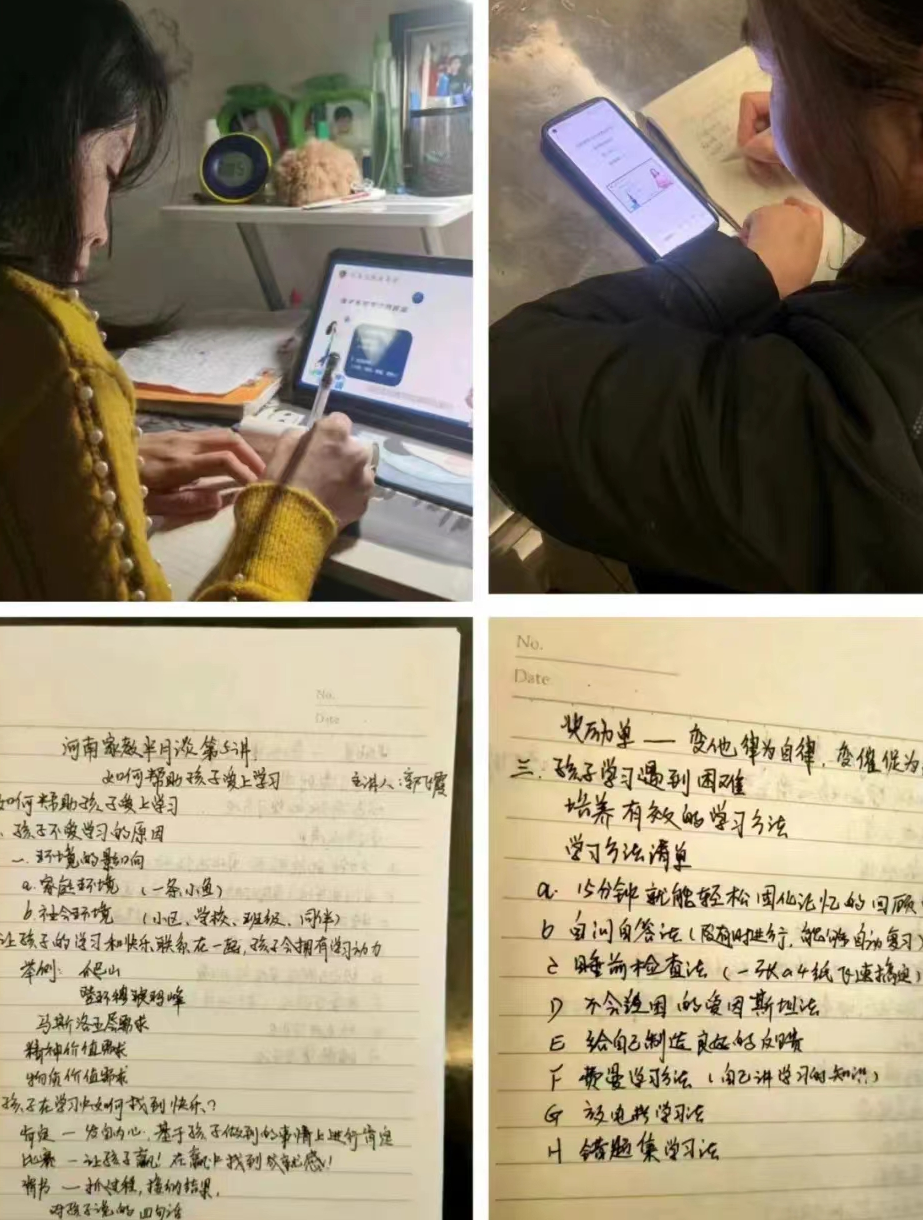 No.
Date
河南家教半月谈第5讲
如何帮助孩子爱上学习 主讲人:郭飞霞
如何帮助孩子爱上学习
、孩子不爱学习的原因
一.环境的影响
a.家庭环境 (一条小鱼)
b.社会环境 (小区、学校、班级、同伴)
让孩子的学习和快乐联系在一起,孩子会拥有学习动力
举例: 爬山
马斯洛五层需求
精神价值需求
物质价值需求
孩子在学习如何找到快乐?
肯定 — 发自内心,基于孩子做到的事情上进行肯定
比赛 — 让孩子赢!在赢中找到成就感!
情书 — 抓过程,接纳结果,
对孩子说的四句话
No.
Date
奖励单 — 变他律为自律,变催促为
三.孩子学习遇到困难
培养有效的学习方法
学习方法清单
a. 15分钟就能轻松固化记忆的回顾
b 自问自答法(随时进行,能够自动复习)
c 睡前检查法(一张a4纸飞速搞定)
D 不会疲困的爱因斯坦法
E 给自己制造良好的反馈
F 费曼学习方法(自己讲学习的知识)
G 放电影学习法
H 错题集学习法